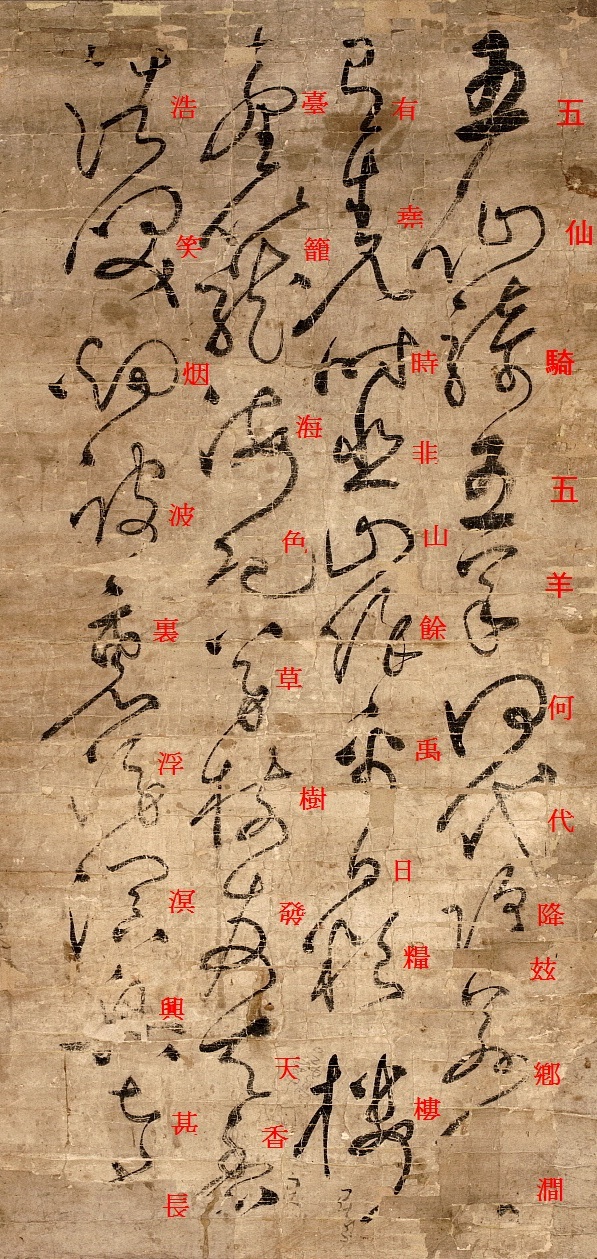 五仙騎五羊何代降茲鄉澗
有堯時非山餘禹日糧樓
臺籠海色草樹發天香
浩笑烟波裏浮溟興甚長